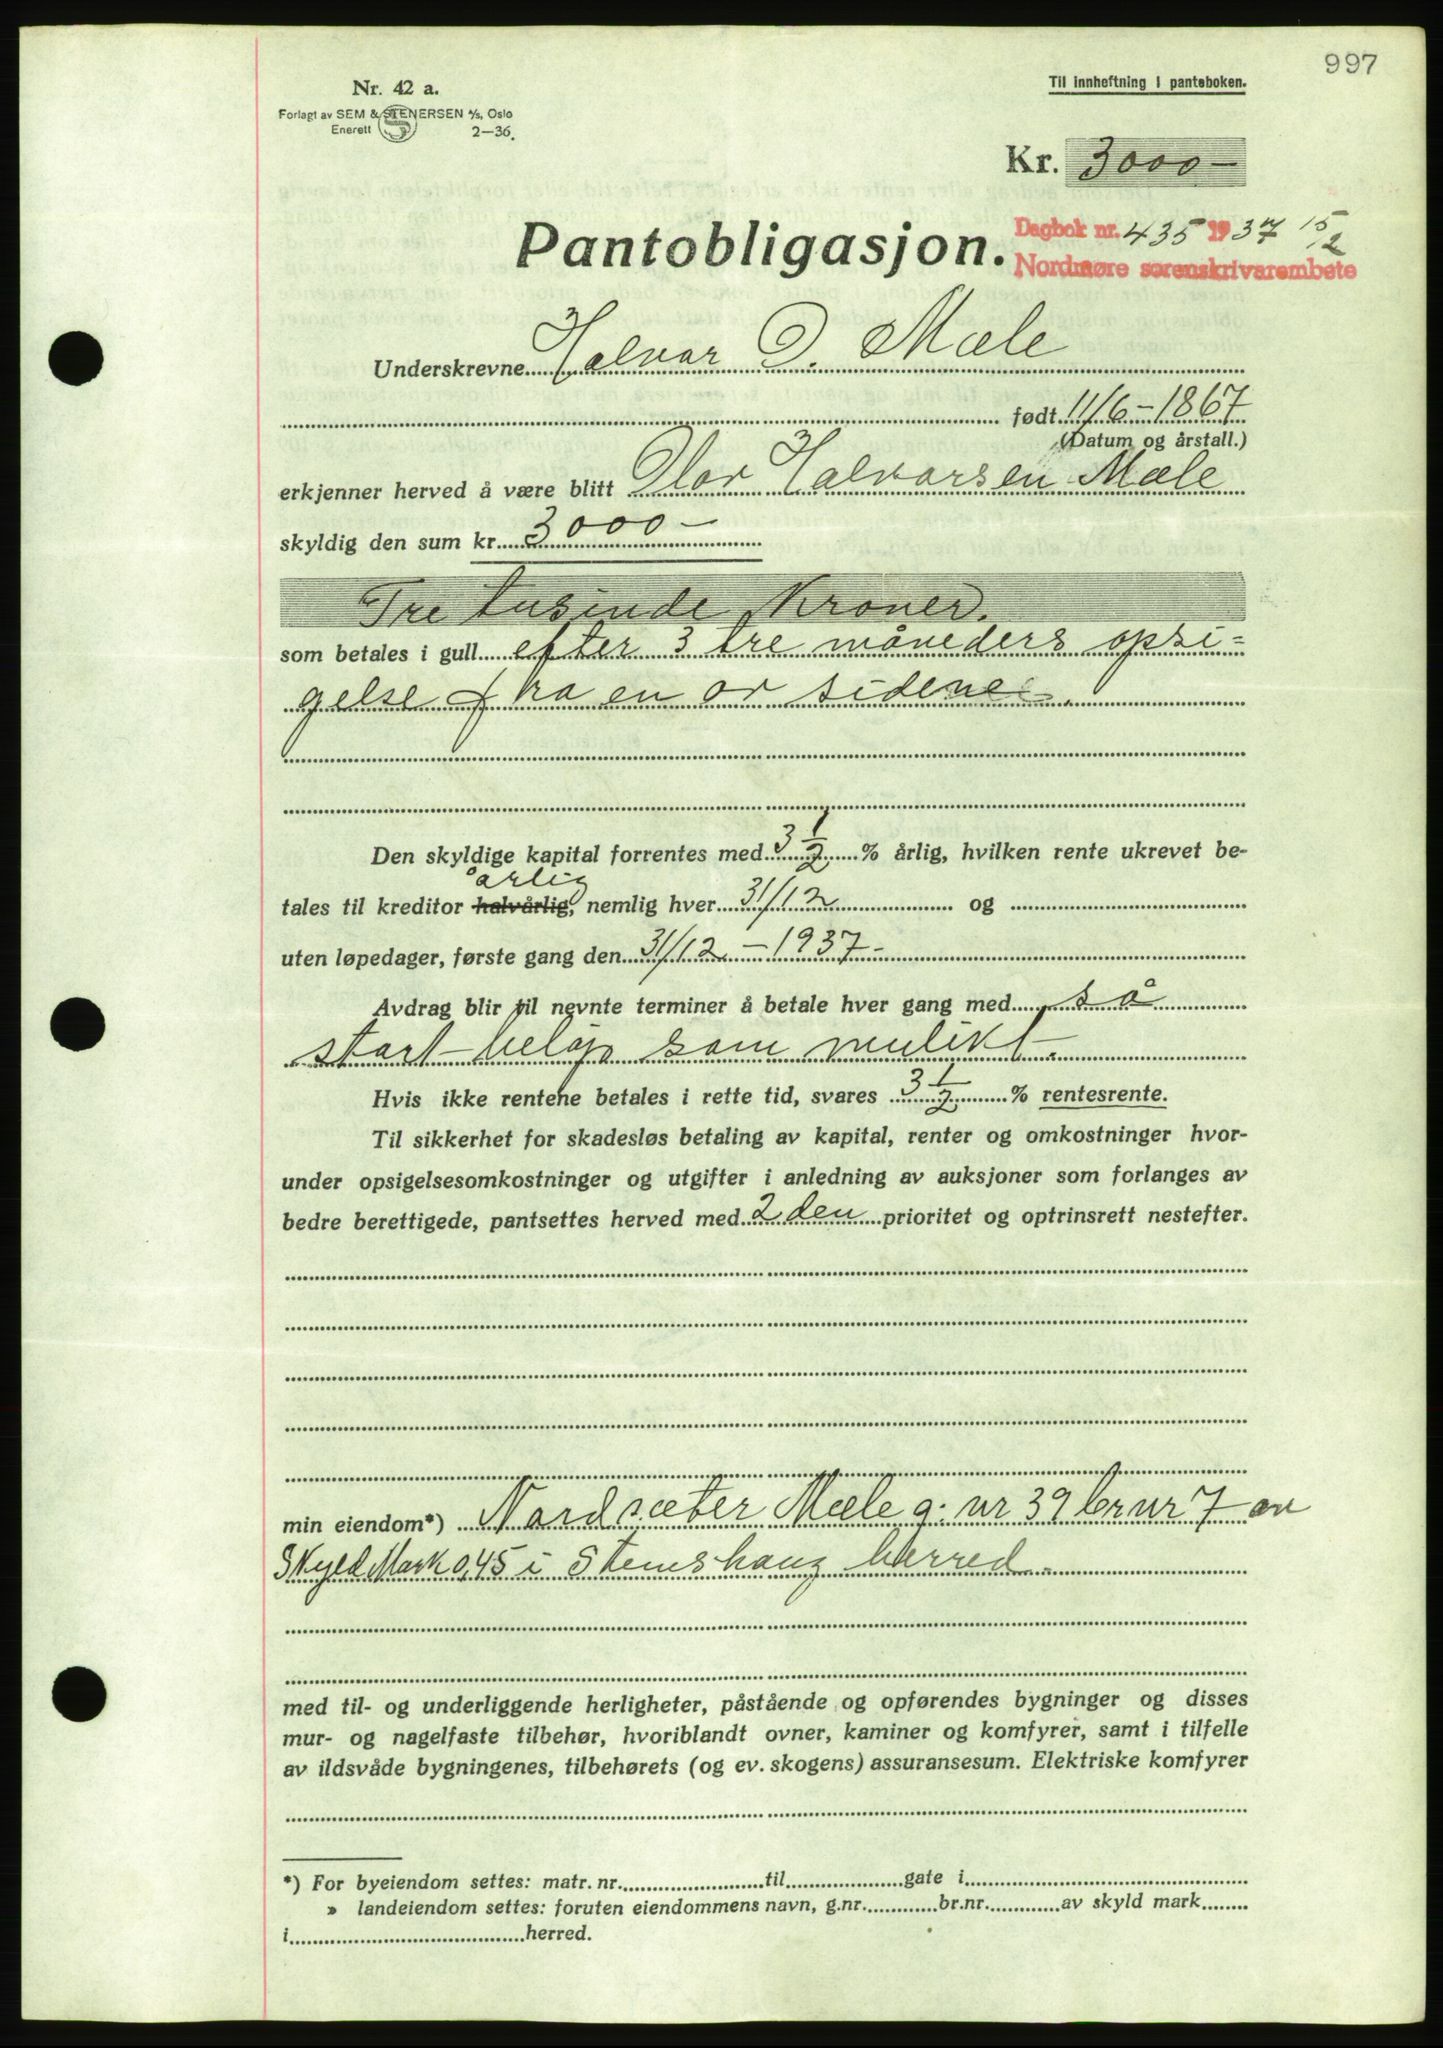 997
Nr. 42 a.
Forlagt av SEM & STENERSEN A/S, Oslo
Enerett 2—36.
Til innheftning i panteboken.
Kr. 3000 —
Pantobligasjon.
Dagbok nr. 435 1937 15/2
Nordmøre sorenskrivarembete
Underskrevne Halvar O. Mæle
født 11/6 - 1867
(Datum og årstall.)
erkjenner herved å være blitt Olav Halvarsen Mæle
skyldig den sum kr. 3000 —
Tre tusinde Kroner.
som betales i gull efter 3 tre måneders opsi-
gelse fra en av sidene.
Den skyldige kapital forrentes med 3 1/2 % årlig, hvilken rente ukrevet be-
årlig
tales til kreditor halvårlig, nemlig hver 31/12 og
uten løpedager, første gang den 31/12 - 1937 -
Avdrag blir til nevnte terminer å betale hver gang med så
stort beløp som mulikt.
Hvis ikke rentene betales i rette tid, svares 3 1/2 % rentesrente.
Til sikkerhet for skadesløs betaling av kapital, renter og omkostninger hvor-
under opsigelsesomkostninger og utgifter i anledning av auksjoner som forlanges av
bedre berettigede, pantsettes herved med 2 den prioritet og optrinsrett nestefter.
min eiendom*) Nordsæter Mæle g. nr 39 br nr 7 av
Skyld Mark 0,45 i Stemshaug herred.
med til- og underliggende herligheter, påstående og opførendes bygninger og disses
mur- og nagelfaste tilbehør, hvoriblandt ovner, kaminer og komfyrer, samt i tilfelle
av ildsvåde bygningenes, tilbehørets (og ev. skogens) assuransesum. Elektriske komfyrer
*) For byeiendom settes: matr. nr. til gate i
» landeiendom settes: foruten eiendommens navn, g.nr. br.nr. av skyld mark
i herred.